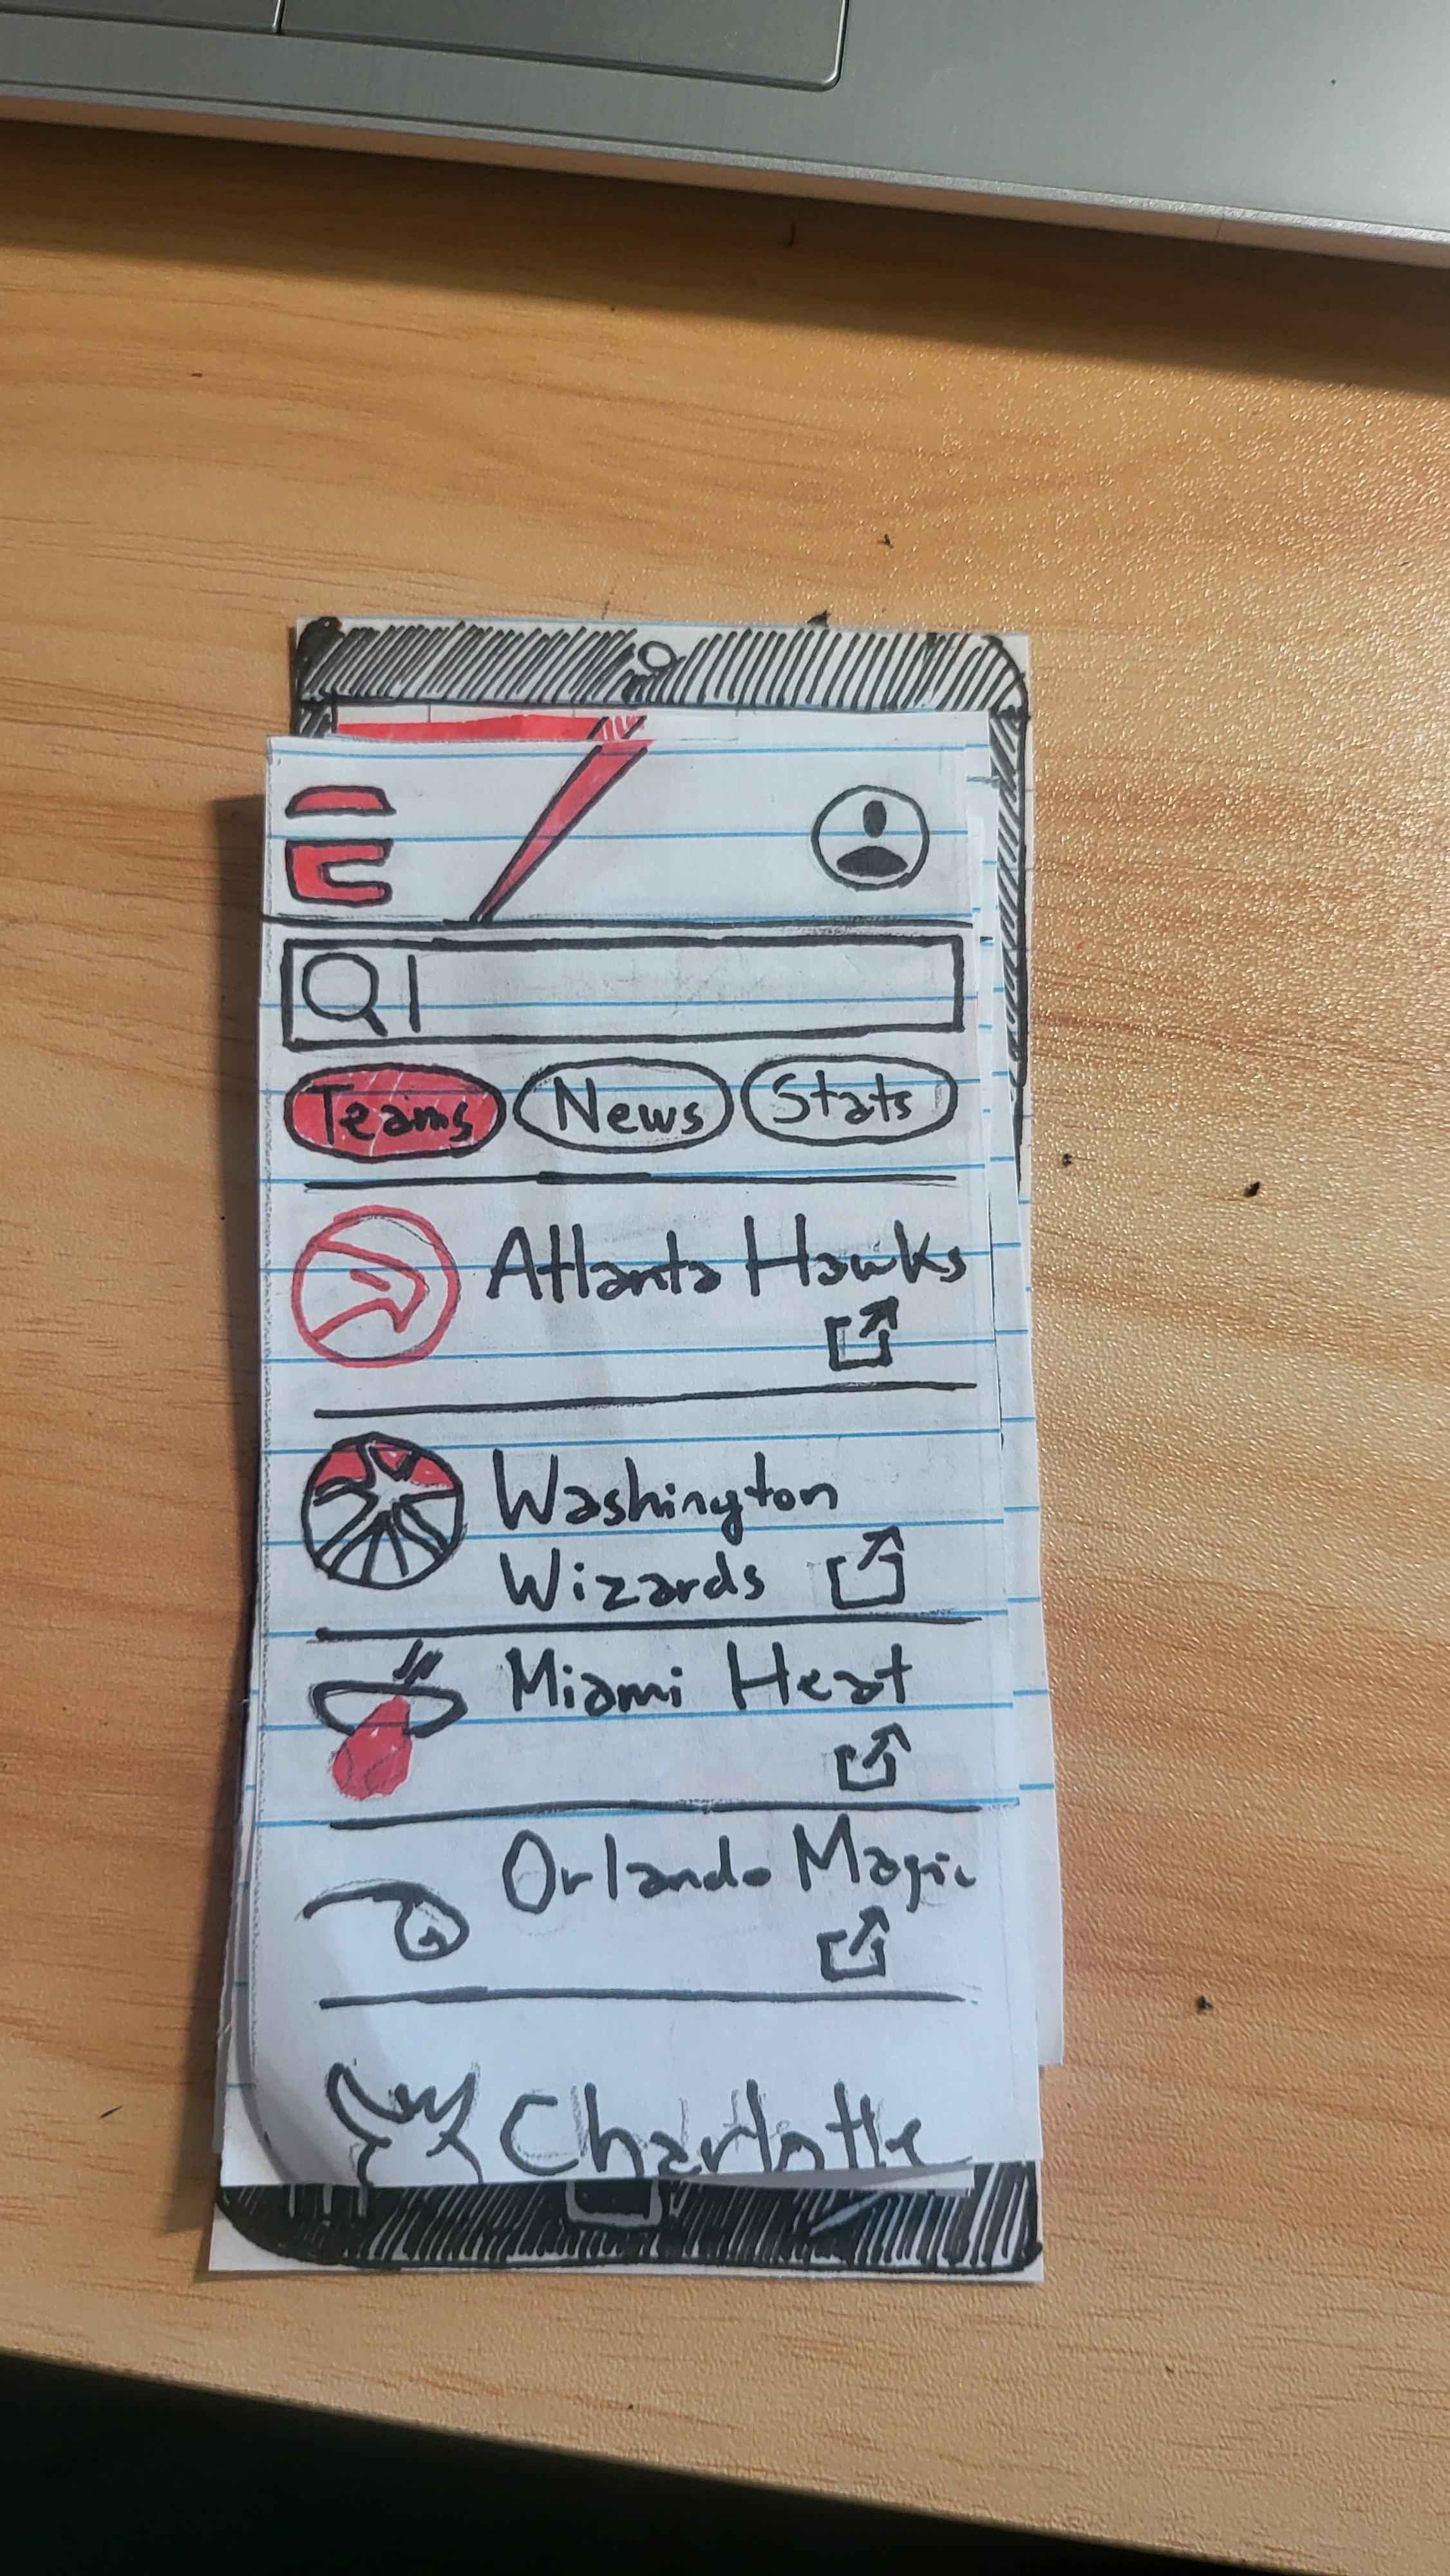 Teams News Stats
Atlanta Hawks
Washington
Wizards
Miami Heat
Orlando Magic
Charlotte